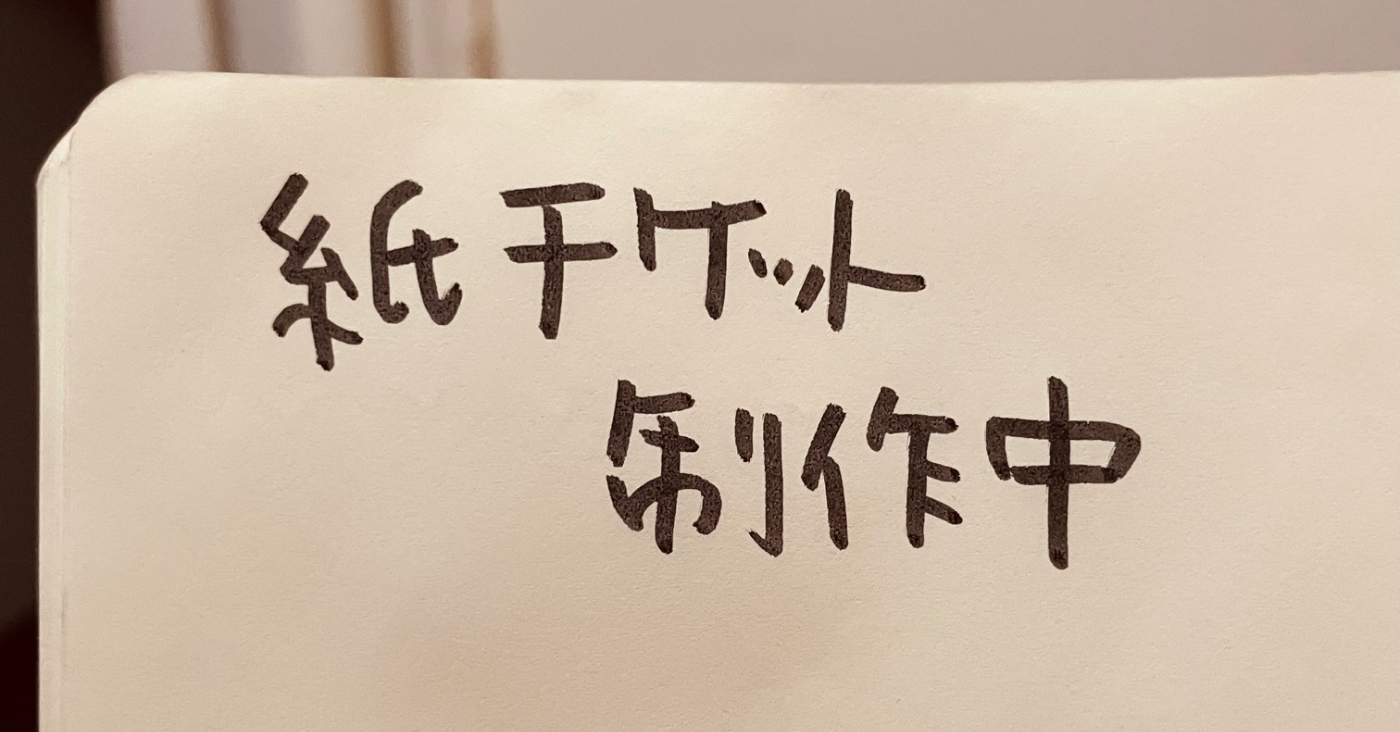 紙チケット
制作中